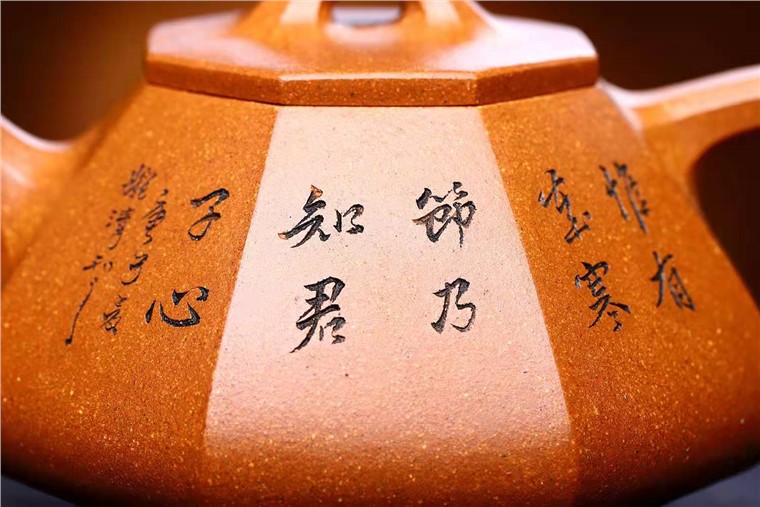 惟有
歲寒
節乃
知君
子心